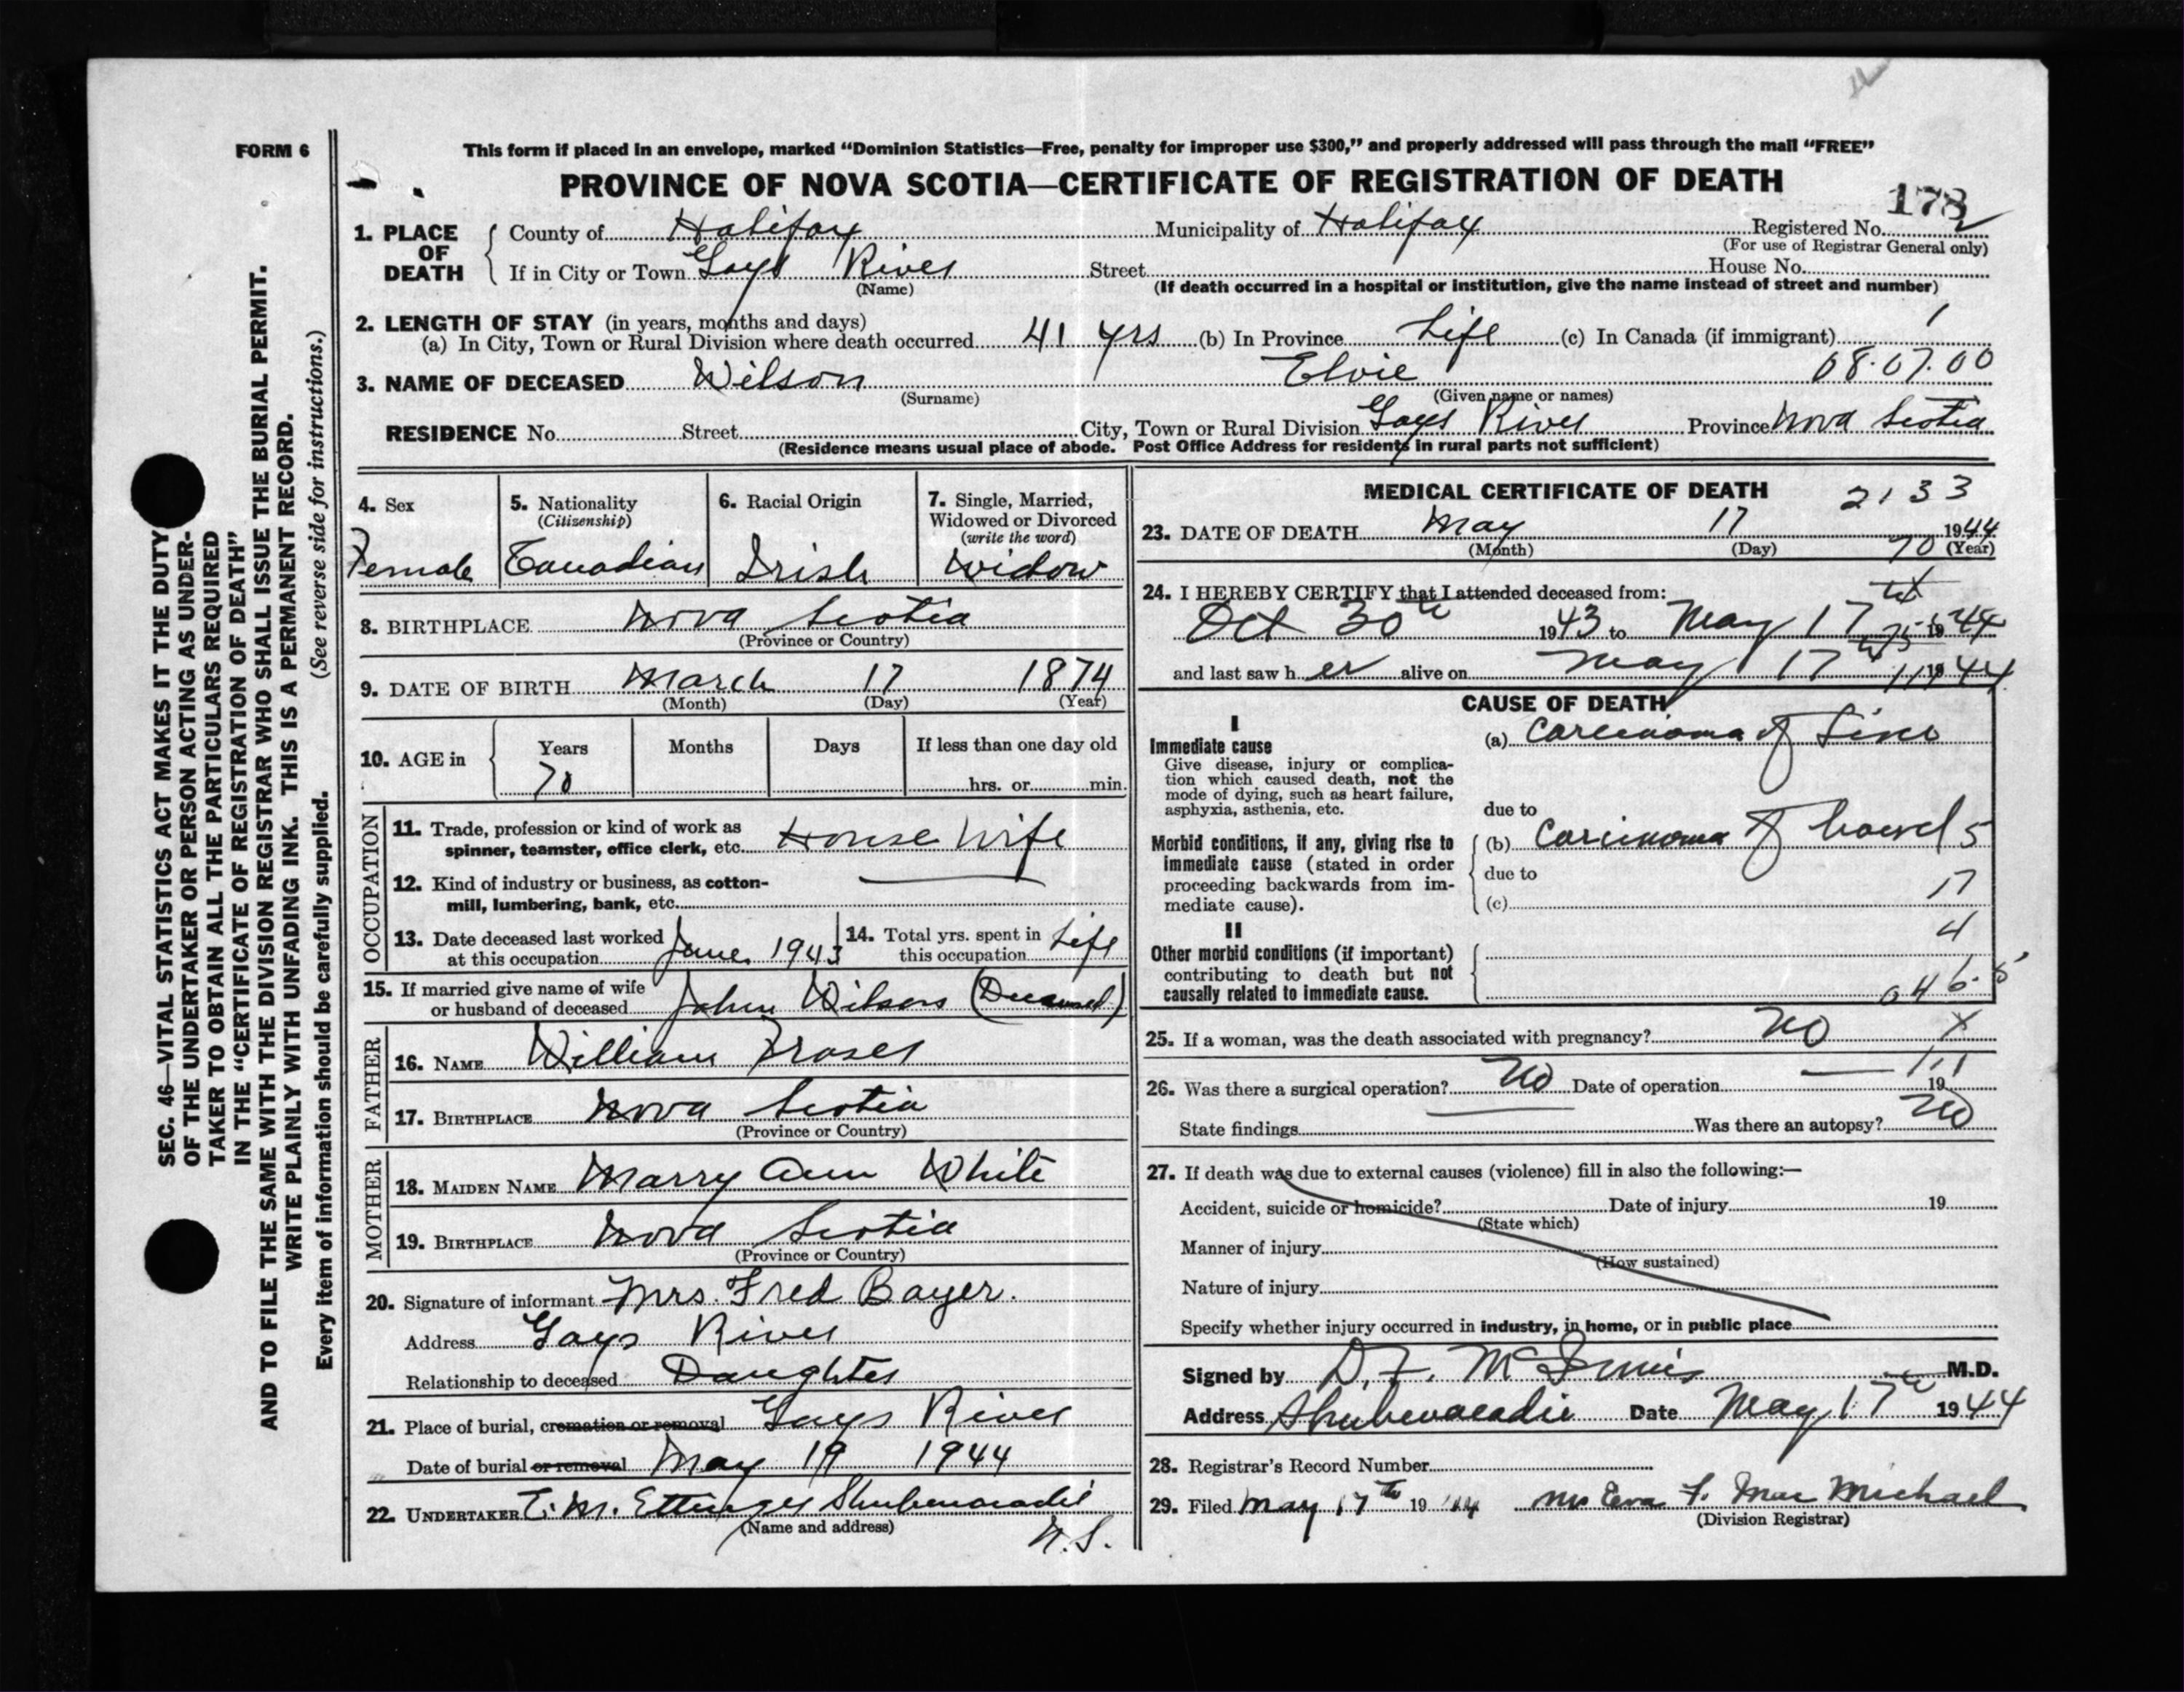 FORM 6
This form if placed in an envelope, marked “Dominion Statistics—Free, penalty for improper use $300,” and properly addressed will pass through the mail “FREE”
PROVINCE OF NOVA SCOTIA—CERTIFICATE OF REGISTRATION OF DEATH
178
1. PLACE OF DEATH County of Halifax Municipality of Halifax Registered No. 2
(For use of Registrar General only)
If in City or Town Gays River Street House No.
(Name) (If death occurred in a hospital or institution, give the name instead of street and number)
2. LENGTH OF STAY (in years, months and days)
(a) In City, Town or Rural Division where death occurred 41 yrs (b) In Province Life (c) In Canada (if immigrant)
08.07.00
3. NAME OF DECEASED Wilson Elvie
(Surname) (Given name or names)
RESIDENCE No. Street City, Town or Rural Division Gays River Province Nova Scotia
(Residence means usual place of abode. Post Office Address for residents in rural parts not sufficient)
4. Sex 5. Nationality (Citizenship) 6. Racial Origin 7. Single, Married, Widowed or Divorced (write the word)
Female Canadian Irish Widow
8. BIRTHPLACE Nova Scotia
(Province or Country)
9. DATE OF BIRTH March 17 1874
(Month) (Day) (Year)
10. AGE in Years Months Days If less than one day old
70 hrs. or min.
OCCUPATION
11. Trade, profession or kind of work as
spinner, teamster, office clerk, etc. House Wife
12. Kind of industry or business, as cotton-
mill, lumbering, bank, etc.
13. Date deceased last worked at this occupation June 1943 14. Total yrs. spent in this occupation Life
15. If married give name of wife
or husband of deceased John Wilson (Deceased)
FATHER
16. NAME William Fraser
17. BIRTHPLACE Nova Scotia
(Province or Country)
MOTHER
18. MAIDEN NAME Marry Ann White
19. BIRTHPLACE Nova Scotia
(Province or Country)
20. Signature of informant Mrs. Fred Bayer.
Address Gays River
Relationship to deceased Daughter
21. Place of burial, cremation or removal Gays River
Date of burial or removal May 19 1944
22. UNDERTAKER E. M. Ettinger Shubenacadie
(Name and address) N.S.
MEDICAL CERTIFICATE OF DEATH 2133
23. DATE OF DEATH May 17 1944
(Month) (Day) 70 (Year)
24. I HEREBY CERTIFY that I attended deceased from:
Oct 30th 1943 to May 17th 1944
and last saw her alive on May 17th 1944
CAUSE OF DEATH
I
Immediate cause
Give disease, injury or complica-
tion which caused death, not the
mode of dying, such as heart failure,
asphyxia, asthenia, etc.
(a) Carcinoma of Liver
due to
Morbid conditions, if any, giving rise to
immediate cause (stated in order
proceeding backwards from im-
mediate cause).
(b) Carcinoma of bowel 5
due to
17
(c)
4
II
Other morbid conditions (if important)
contributing to death but not
causally related to immediate cause.
046.5
25. If a woman, was the death associated with pregnancy? No X
26. Was there a surgical operation? No Date of operation 19
State findings Was there an autopsy? No
27. If death was due to external causes (violence) fill in also the following:—
Accident, suicide or homicide? Date of injury 19
(State which)
Manner of injury
(How sustained)
Nature of injury
Specify whether injury occurred in industry, in home, or in public place
Signed by D. F. M.D.
Address Shubenacadie Date May 17th 1944
28. Registrar's Record Number
29. Filed May 17th 1944 Mrs Eva F. Mac Michael
(Division Registrar)
SEC. 46—VITAL STATISTICS ACT MAKES IT THE DUTY
OF THE UNDERTAKER OR PERSON ACTING AS UNDER-
TAKER TO OBTAIN ALL THE PARTICULARS REQUIRED
IN THE “CERTIFICATE OF REGISTRATION OF DEATH”
AND TO FILE THE SAME WITH THE DIVISION REGISTRAR WHO SHALL ISSUE THE BURIAL PERMIT.
WRITE PLAINLY WITH UNFADING INK. THIS IS A PERMANENT RECORD.
Every item of information should be carefully supplied. (See reverse side for instructions.)